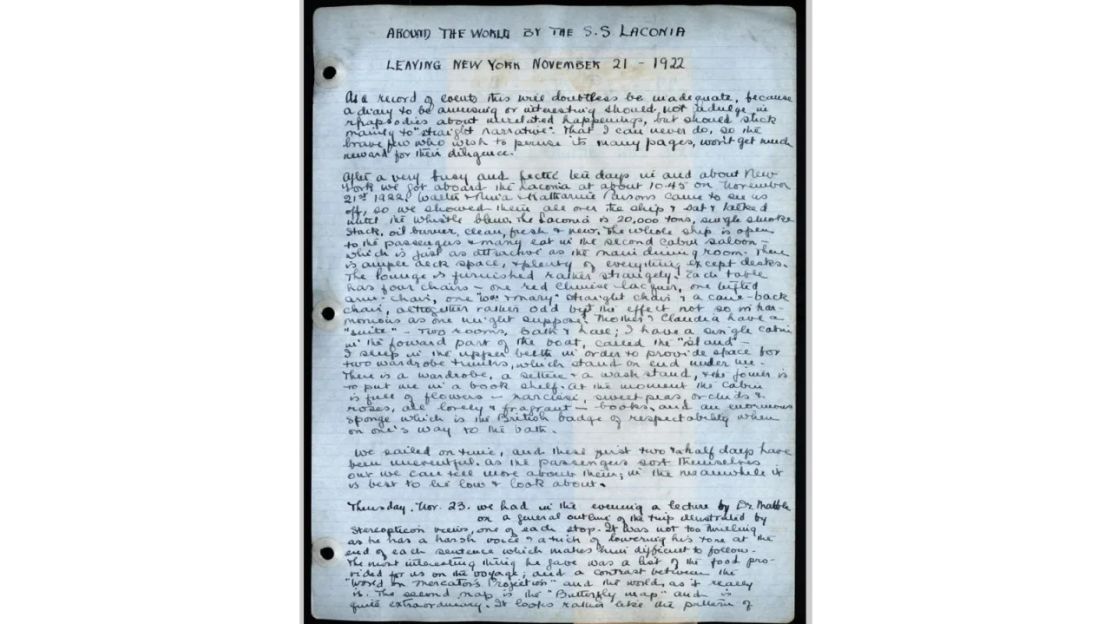 AROUND THE WORLD BY THE S.S LACONIA
LEAVING NEW YORK NOVEMBER 21 - 1922
As a record of events this will doubtless be inadequate, because
a diary to be amusing or interesting should not indulge in
rhapsodies about unrelated happenings, but should stick
mainly to "straight narrative". That I can never do, so the
brave few who wish to peruse its many pages, won't get much
reward for their diligence.
After a very busy and hectic ten days in and about New
York we got aboard the Laconia at about 10:45 on November
21st 1922. Walter & & Katharine Parsons came to see us
off, so we showed them all over the ship & sat & talked
until the whistle blew. The Laconia is 20,000 tons, single smoke
stack, oil burner, clean, fresh & new. The whole ship is open
to the passengers & many eat in the second cabin saloon -
which is just as attractive as the main dining room. There
is ample deck space, & plenty of everything except desks.
The lounge is furnished rather strangely. Each table
has four chairs - one red Chinese lacquer, one tufted
arm-chair, one "Wm & Mary" straight chair & a cane-back
chair, altogether rather odd but the effect not so in har-
monious as one might suppose. Mother & Claudia have a
"suite" - two rooms, bath & hall; I have a single cabin
in the foward part of the boat, called the "island" -
I sleep in the upper berth in order to provide space for
two wardrobe trunks, which stand on end under me.
There is a wardrobe, a settee & a wash stand, & the joiner is
to put me in a book shelf. At the moment the cabin
is full of flowers - narcissi, sweet peas, orchids &
roses, all lovely & fragrant - books and an enormous
sponge which is the British badge of respectability when
on one's way to the bath.
We sailed on time, and these first two & a half days have
been uneventful. As the passengers sort themselves
out we can tell more about them; in the meanwhile it
is best to lie low & look about.
Thursday. Nov. 23. We had in the evening a lecture by Dr.
on a general outline of the trip illustrated by
stereopticon views, one of each stop. It was not too thrilling
as he has a harsh voice & a trick of lowering his tone at the
end of each sentence which makes him difficult to follow.
The most interesting thing he gave was a list of the food pro-
vided for us on the voyage; and a contrast between the
"World on Mercator's Projection" and the world, as it really
is. The second map is the "Butterfly map" and is
quite extraordinary. It looks rather like the pattern of